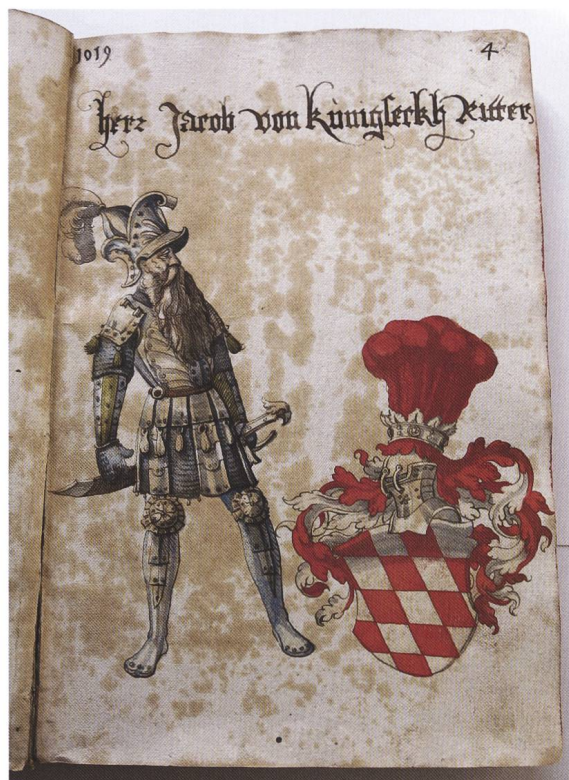 1019
4
herr Jacob von künigseckh Ritter